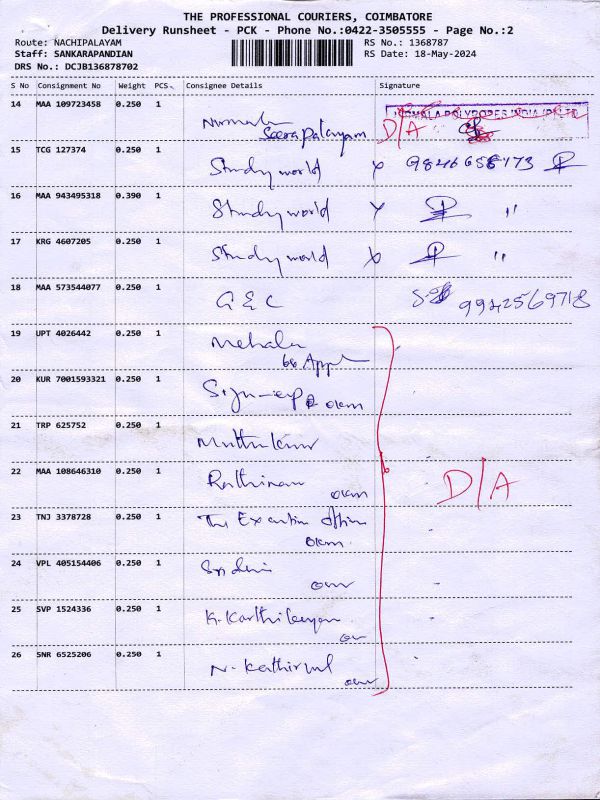 THE PROFESSIONAL COURIERS, COIMBATORE
Delivery Runsheet - PCK - Phone No.:0422-3505555 - Page No.:2
Route: NACHIPALAYAM RS No.: 1368787
Staff: SANKARAPANDIAN RS Date: 18-May-2024
DRS No.: DCJB136878702
S No Consignment No Weight PCS. Consignee Details Signature
14 MAA 109723458 0.250 1 D/A
15 TCG 127374 0.250 1 Study world
16 MAA 943495318 0.390 1 Study world
17 KRG 4607205 0.250 1 Study world
18 MAA 573544077 0.250 1 G E C 9942569718
19 UPT 4026442 0.250 1 Mehala
20 KUR 7001593321 0.250 1 okm
21 TRP 625752 0.250 1
22 MAA 108646310 0.250 1 Rathinam D/A
okm
23 TNJ 3378728 0.250 1 The Executive
okm
24 VPL 405154406 0.250 1
25 SVP 1524336 0.250 1 K. Karthikeyan
26 SNR 6525206 0.250 1 N. Kathirvel